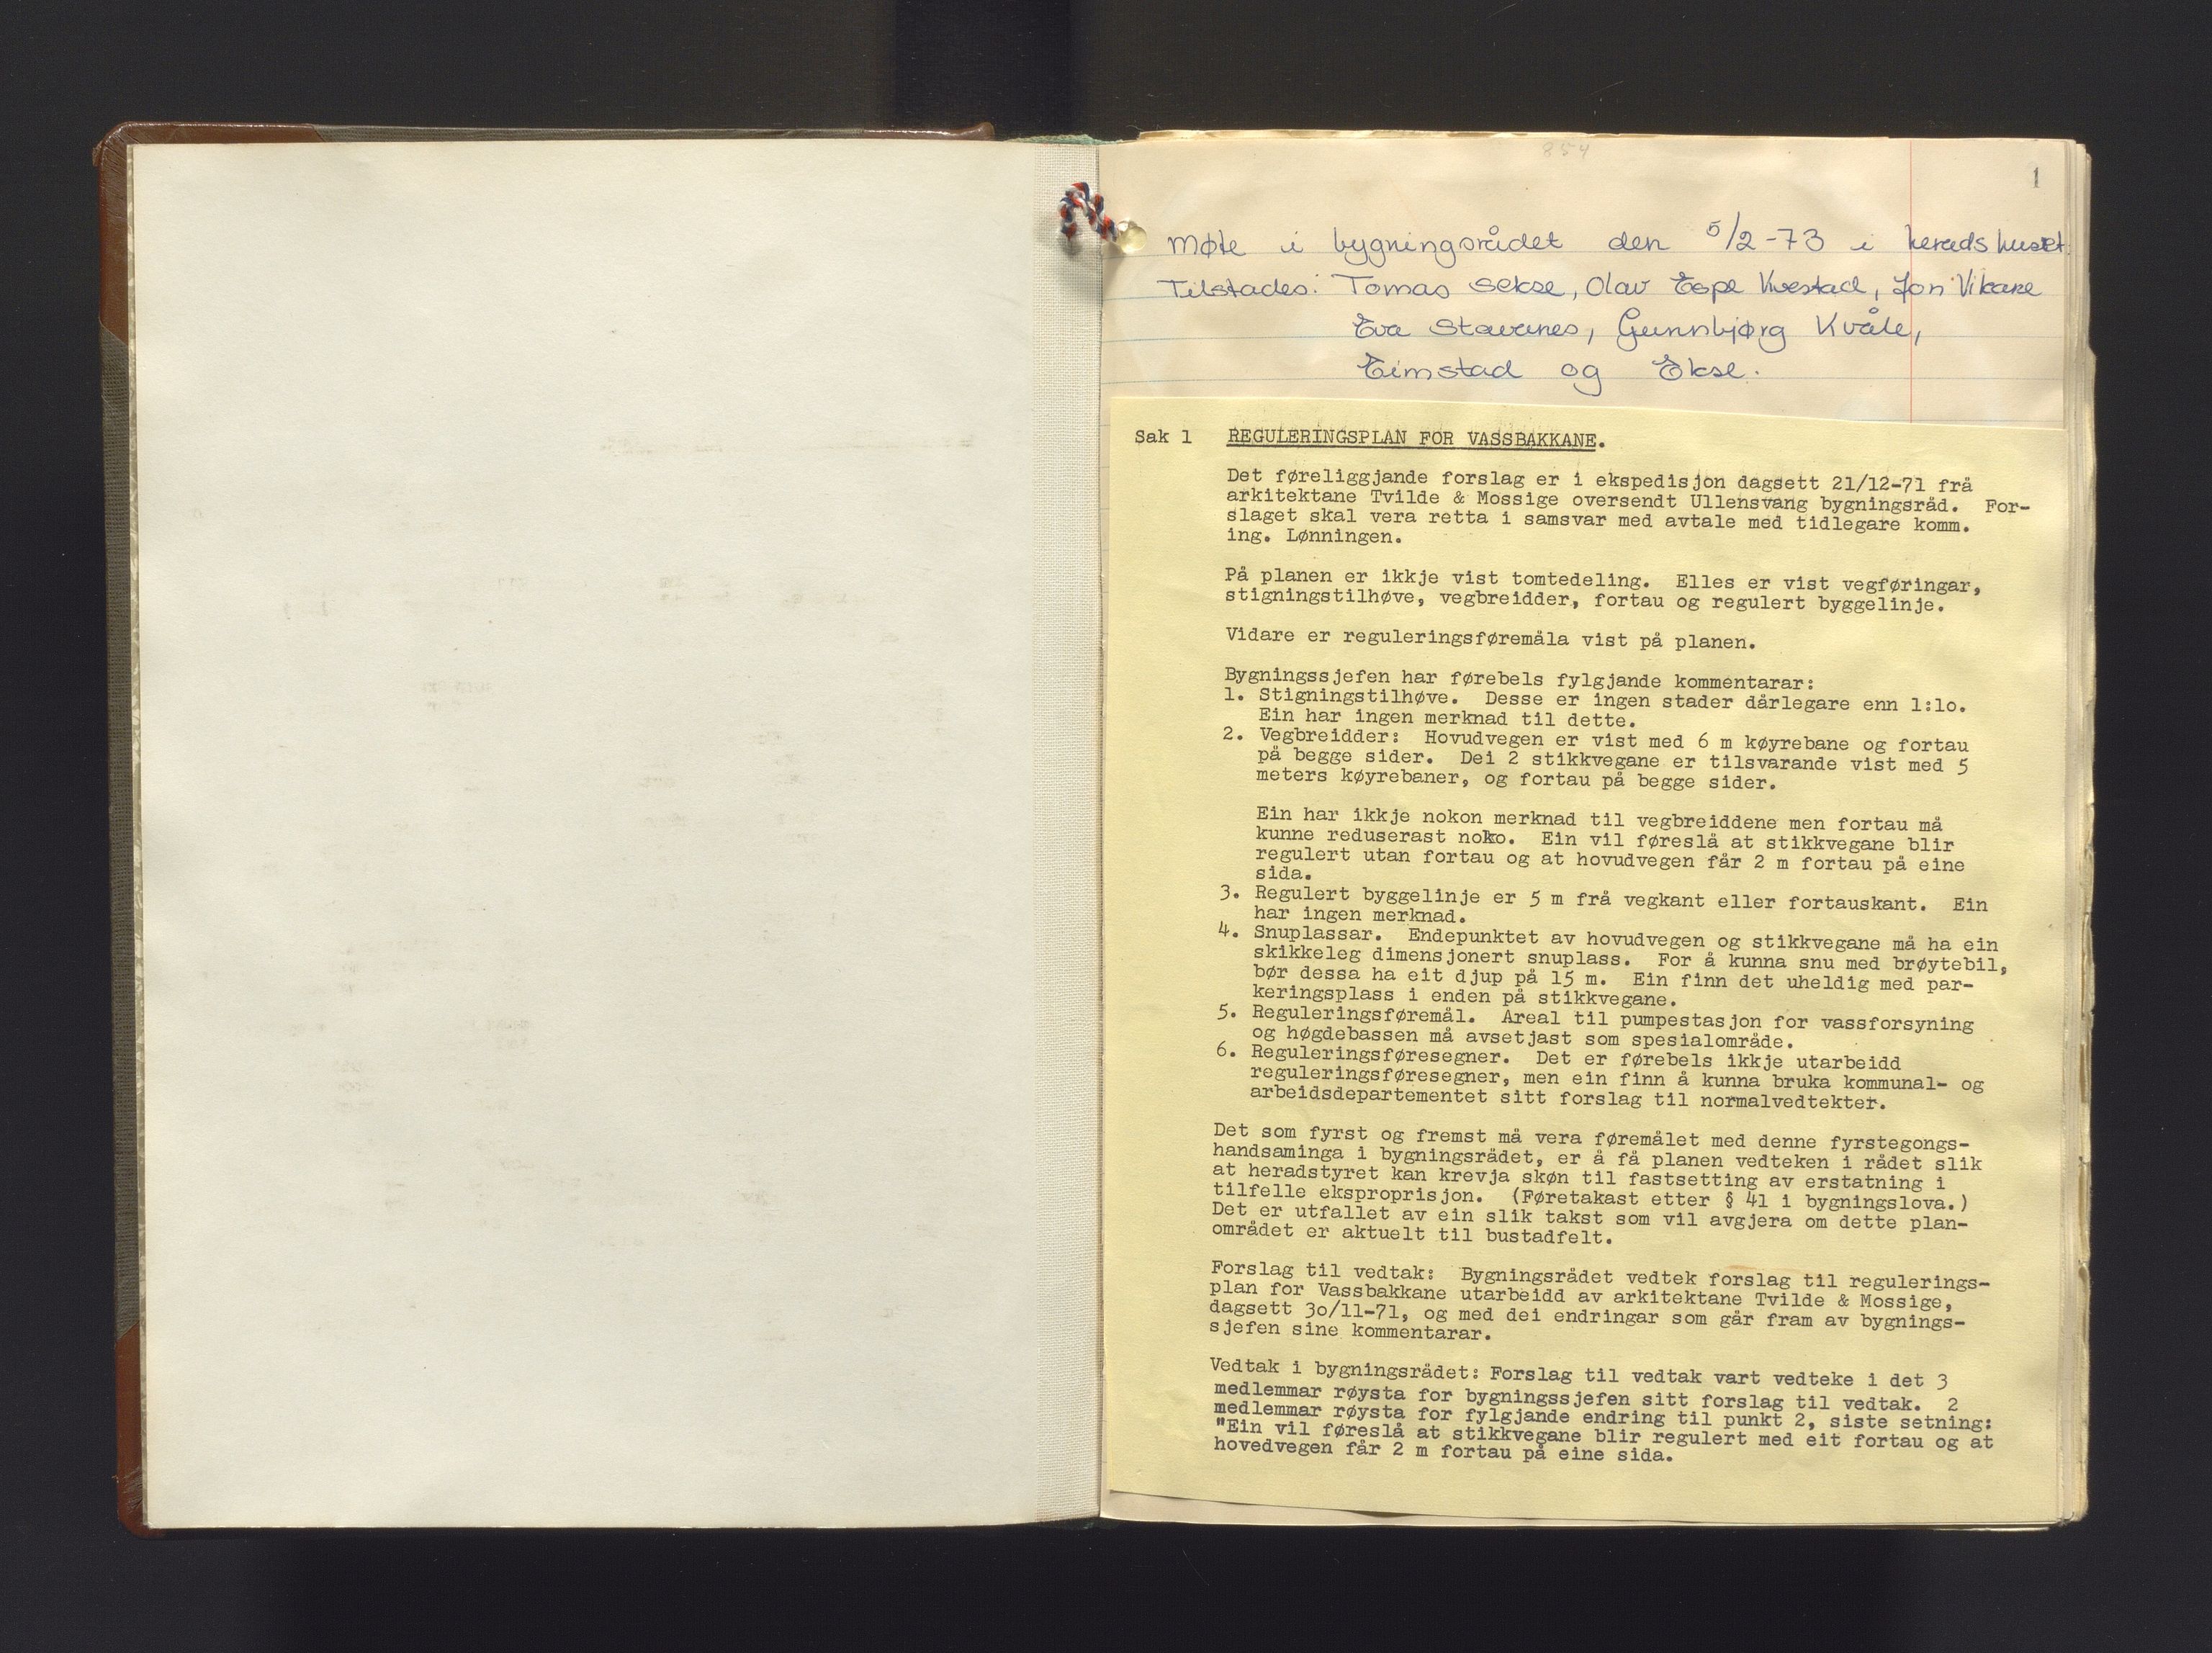 854
1
Møte i bygningsrådet den 5/2-73 i heradshuset.
Tilstades: Tomas Sekse, Olav Espe Kvestad, Jon Vikane
Eva Stavenes, Gunnbjørg Kvåle,
Eimstad og Ekse.
Sak 1 REGULERINGSPLAN FOR VASSBAKKANE.
Det føreliggjande forslag er i ekspedisjon dagsett 21/12-71 frå
arkitektane Tvilde & Mossige oversendt Ullensvang bygningsråd. For-
slaget skal vera retta i samsvar med avtale med tidlegare komm.
ing. Lønningen.
På planen er ikkje vist tomtedeling. Elles er vist vegføringar,
stigningstilhøve, vegbreidder, fortau og regulert byggelinje.
Vidare er reguleringsføremåla vist på planen.
Bygningssjefen har førebels fylgjande kommentarar:
1. Stigningstilhøve. Desse er ingen stader dårlegare enn 1:lo.
Ein har ingen merknad til dette.
2. Vegbreidder: Hovudvegen er vist med 6 m køyrebane og fortau
på begge sider. Dei 2 stikkvegane er tilsvarande vist med 5
meters køyrebaner, og fortau på begge sider.
Ein har ikkje nokon merknad til vegbreiddene men fortau må
kunne reduserast noko. Ein vil føreslå at stikkvegane blir
regulert utan fortau og at hovudvegen får 2 m fortau på eine
sida.
3. Regulert byggelinje er 5 m frå vegkant eller fortauskant. Ein
har ingen merknad.
4. Snuplassar. Endepunktet av hovudvegen og stikkvegane må ha ein
skikkeleg dimensjonert snuplass. For å kunna snu med brøytebil,
bør dessa ha eit djup på 15 m. Ein finn det uheldig med par-
keringsplass i enden på stikkvegane.
5. Reguleringsføremål. Areal til pumpestasjon for vassforsyning
og høgdebassen må avsetjast som spesialområde.
6. Reguleringsføresegner. Det er førebels ikkje utarbeidd
reguleringsføresegner, men ein finn å kunna bruka kommunal- og
arbeidsdepartementet sitt forslag til normalvedtekter.
Det som fyrst og fremst må vera føremålet med denne fyrstegongs-
handsaminga i bygningsrådet, er å få planen vedteken i rådet slik
at heradstyret kan krevja skøn til fastsetting av erstatning i
tilfelle eksproprisjon. (Føretakast etter § 41 i bygningslova.)
Det er utfallet av ein slik takst som vil avgjera om dette plan-
området er aktuelt til bustadfelt.
Forslag til vedtak: Bygningsrådet vedtek forslag til regulerings-
plan for Vassbakkane utarbeidd av arkitektane Tvilde & Mossige,
dagsett 3o/11-71, og med dei endringar som går fram av bygnings-
sjefen sine kommentarar.
Vedtak i bygningsrådet: Forslag til vedtak vart vedteke i det 3
medlemmar røysta for bygningssjefen sitt forslag til vedtak. 2
medlemmar røysta for fylgjande endring til punkt 2, siste setning:
"Ein vil føreslå at stikkvegane blir regulert med eit fortau og at
hovedvegen får 2 m fortau på eine sida.